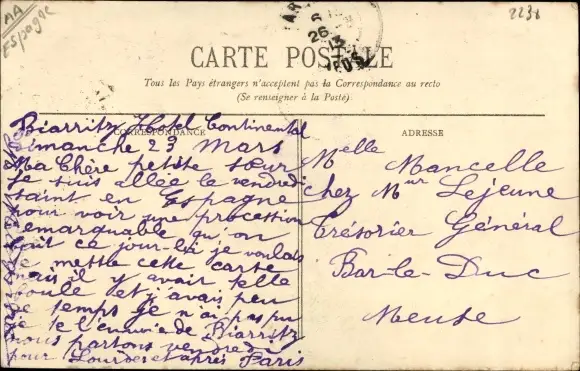 AA
Espagne
223b
CARTE POSTALE
Tous les Pays étrangers n'acceptent pas la Correspondance au recto
(Se renseigner à la Poste)
CORRESPONDANCE
Biarritz Hotel Continental
Dimanche 23 Mars
Ma Chère petite sœur
Je suis allée le vendredi
saint en Espagne
pour voir une procession
remarquable qu'on
fait ce jour-là je voulais
te mettre cette carte
mais il y avait telle
foule et j'avais peu
de temps je n'ai pas pu
je te l'envoie de Biarritz
nous partons vendredi
pour Lourdes et après Paris
ADRESSE
Melle Mancelle
chez Mur Lejeune
Trésorier Général
Bar-le-Duc
Meuse